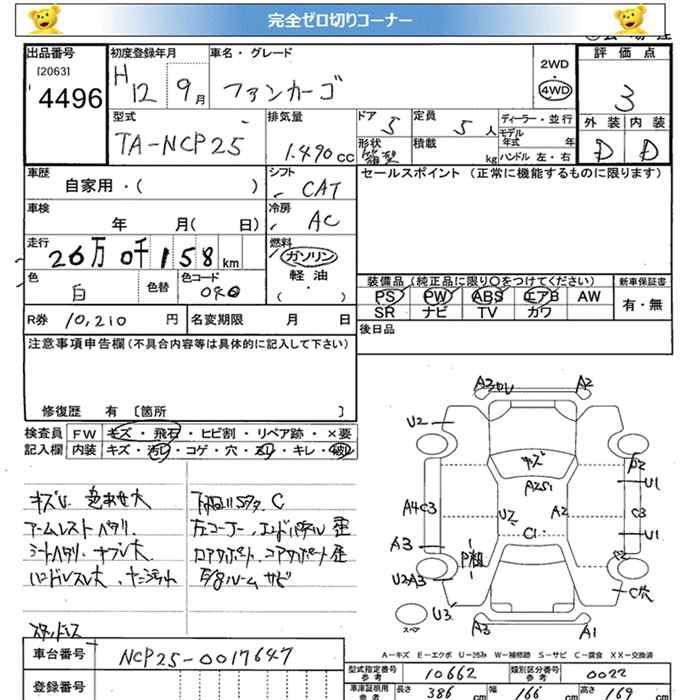 完全ゼロ切りコーナー
出品番号 初度登録年月 車名・グレード 評価点
[2063]
4496 H12 9月 ファンカーゴ 2WD 4WD 3
型式 排気量 ドア 定員 ディーラー・並行 外装 内装
TA-NCP25 1.490cc 5 5人 モデル年式 年 D D
形状 箱型 積載 kg ハンドル 左・右
車歴 シフト セールスポイント (正常に機能するものに限ります)
自家用・( ) CAT
車検 冷房
年 月( 日) AC
走行 燃料
26万0千158km ガソリン
色 色替 色コード 軽油
白 040 ( ・ )
装備品 (純正品に限り〇をつけてください) 新車保証書
PS PW ABS エアB AW 有・無
SR ナビ TV カワ
R券 10,210円 名変期限 月 日 後日品
注意事項申告欄(不具合内容等は具体的に記入して下さい)
修復歴 有 〔箇所 〕
検査員 FW キズ・飛石・ヒビ割・リペア跡・×要
記入欄 内装 キズ・汚レ・コゲ・穴・スレ・キレ・破レ
キズU 色あせ大
アームレストヘタリ
シートヘタリ
ハンドルスレ大
C
左コーナー、エンドパネル歪
ルーム サビ
A3 A2
U2
キズ
A2
U1
A4C3 A2 C3
C1 U1
A3
U2A3 C穴
U3
スペア A3 A1
A-キズ E-エクボ U-凹み W-補修跡 S-サビ C-腐食 XX-交換済
車台番号 NCP25-0017647
登録番号
型式指定番号 参考 10662 類別区分番号 参考 0022
車庫証明用 参考 長さ 386cm 幅 166cm 高さ 169cm